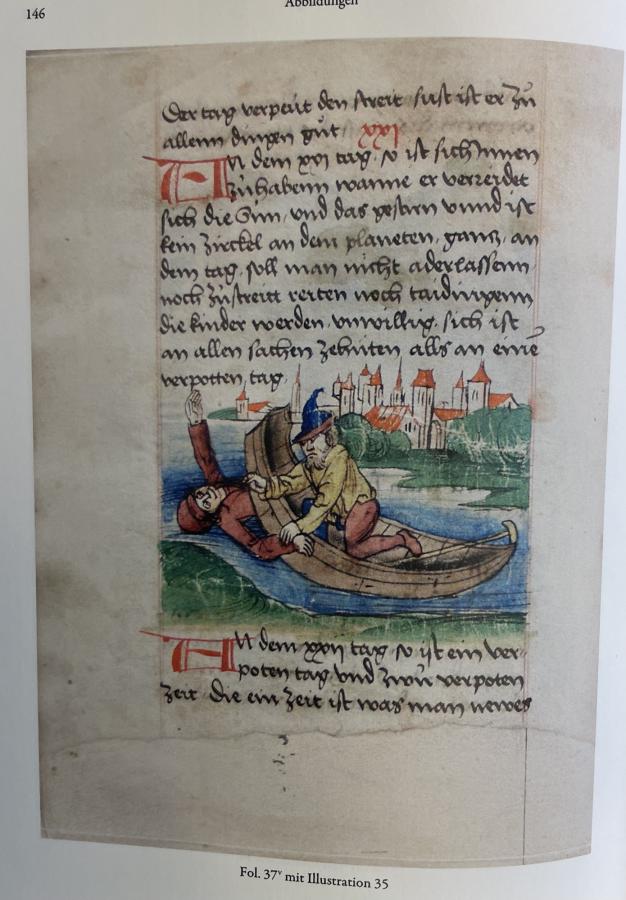 146
Abbildungen
Der tag verpeut den streit sust ist er zü
allenn dingen güt xxj
An dem xxj tag so ist sich Innen
zü habenn wanne er verreidet
sich die Sün, vnd das gestirn vnnd ist
kein zirckel an dem planeten, ganz, an
dem tag, soll man nicht aderlassenn,
noch zü streitt reiten noch taidingenn
die kinder werden, vnwillig, sich ist
an allen sachen zehüten alls an eine
verpotten, tag,
An dem xxij tag so ist ein ver-
poten tag vnd zwü verpoten
zeit die ein zeit ist was man newes
Fol. 37v mit Illustration 35